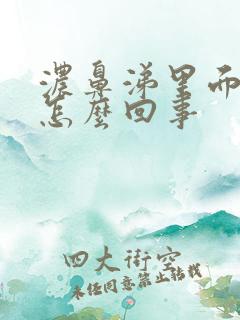 浓鼻涕里而
怎么回事
四大街空
未经同意禁止转载